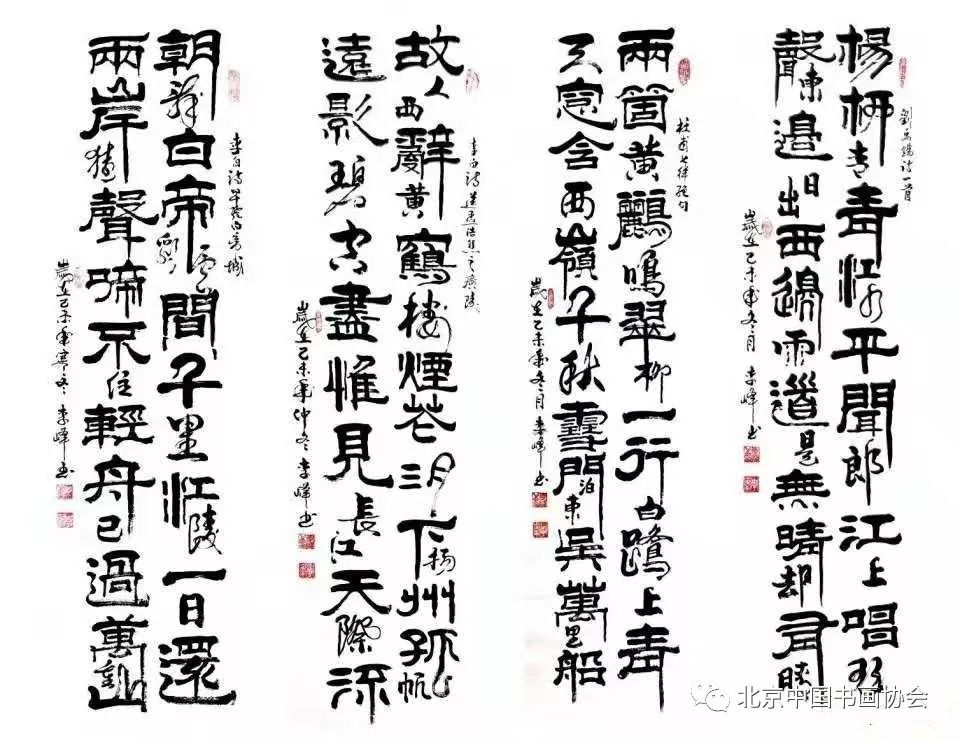 楊柳青青江水平聞郎江上唱歌
聲東邊日出西邊雨道是無晴却有晴
劉禹錫詩一首
歲在乙未年冬月 李峰书
兩箇黃鸝鳴翠柳一行白鷺上青
天窓含西嶺千秋雪門泊東吳萬里船
杜甫七律绝句
歲在乙未年冬月 李峰书
故人西辭黃鶴樓煙花三月下揚州孤帆
遠影碧空盡惟見長江天際流
李白詩送孟浩然之廣陵
歲在乙未年仲冬 李峰书
朝辭白帝彩雲間千里江陵一日還
兩岸猿聲啼不住輕舟已過萬重山
李白詩早發白帝城
歲在乙未年寒冬 李峰书
北京中国书画协会